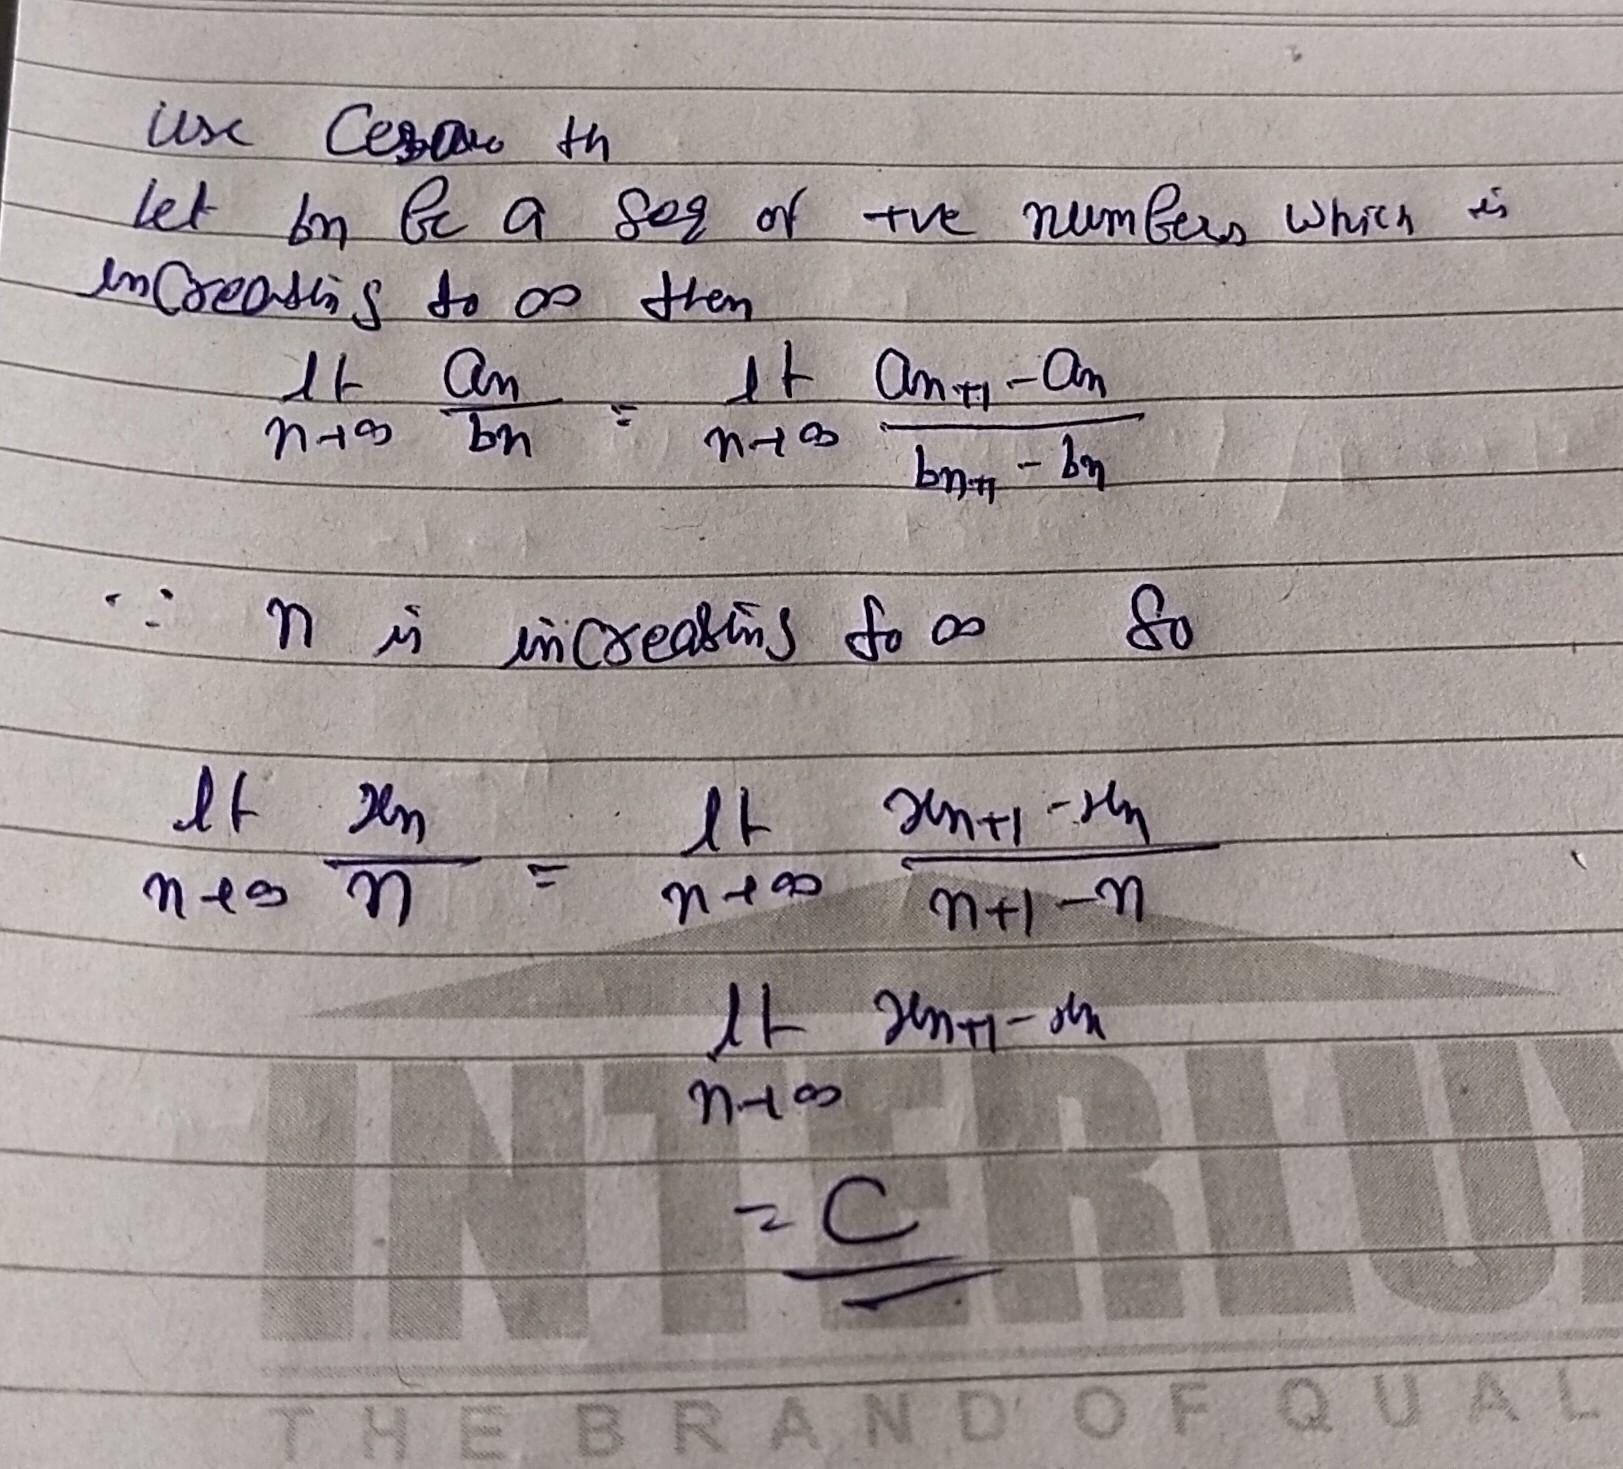 use Cesaro th
Let bn be a seq of +ve numbers which is
increasing to ∞ then
lt n→∞ an/bn = lt n→∞ (an+1 - an)/(bn+1 - bn)
∵ n is increasing to ∞ So
lt n→∞ xn/n = lt n→∞ (xn+1 - xn)/(n+1 - n)
lt n→∞ xn+1 - xn
= C
INTERLUX
THE BRAND OF QUAL